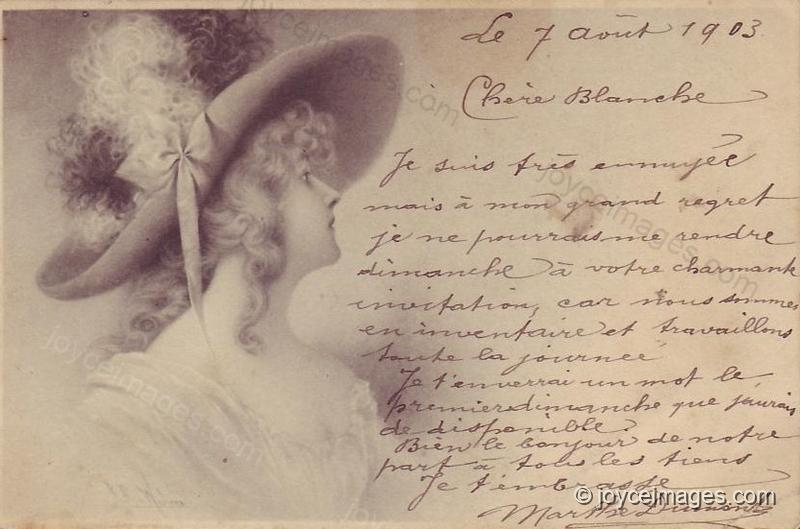 Le 7 Août 1903.
Chère Blanche
Je suis très ennuyée
mais à mon grand regret
je ne pourrais me rendre
dimanche à votre charmante
invitation, car nous sommes
en inventaire et travaillons
toute la journée
Je t'enverrai un mot le
premier dimanche que j'aurais
de disponible.
Bien le bonjour de notre
part à tous les tiens
Je t'embrasse
Marthe Dumont
© joyceimages.com
joyceimages.com
joyceimages.com
joyceimages.com